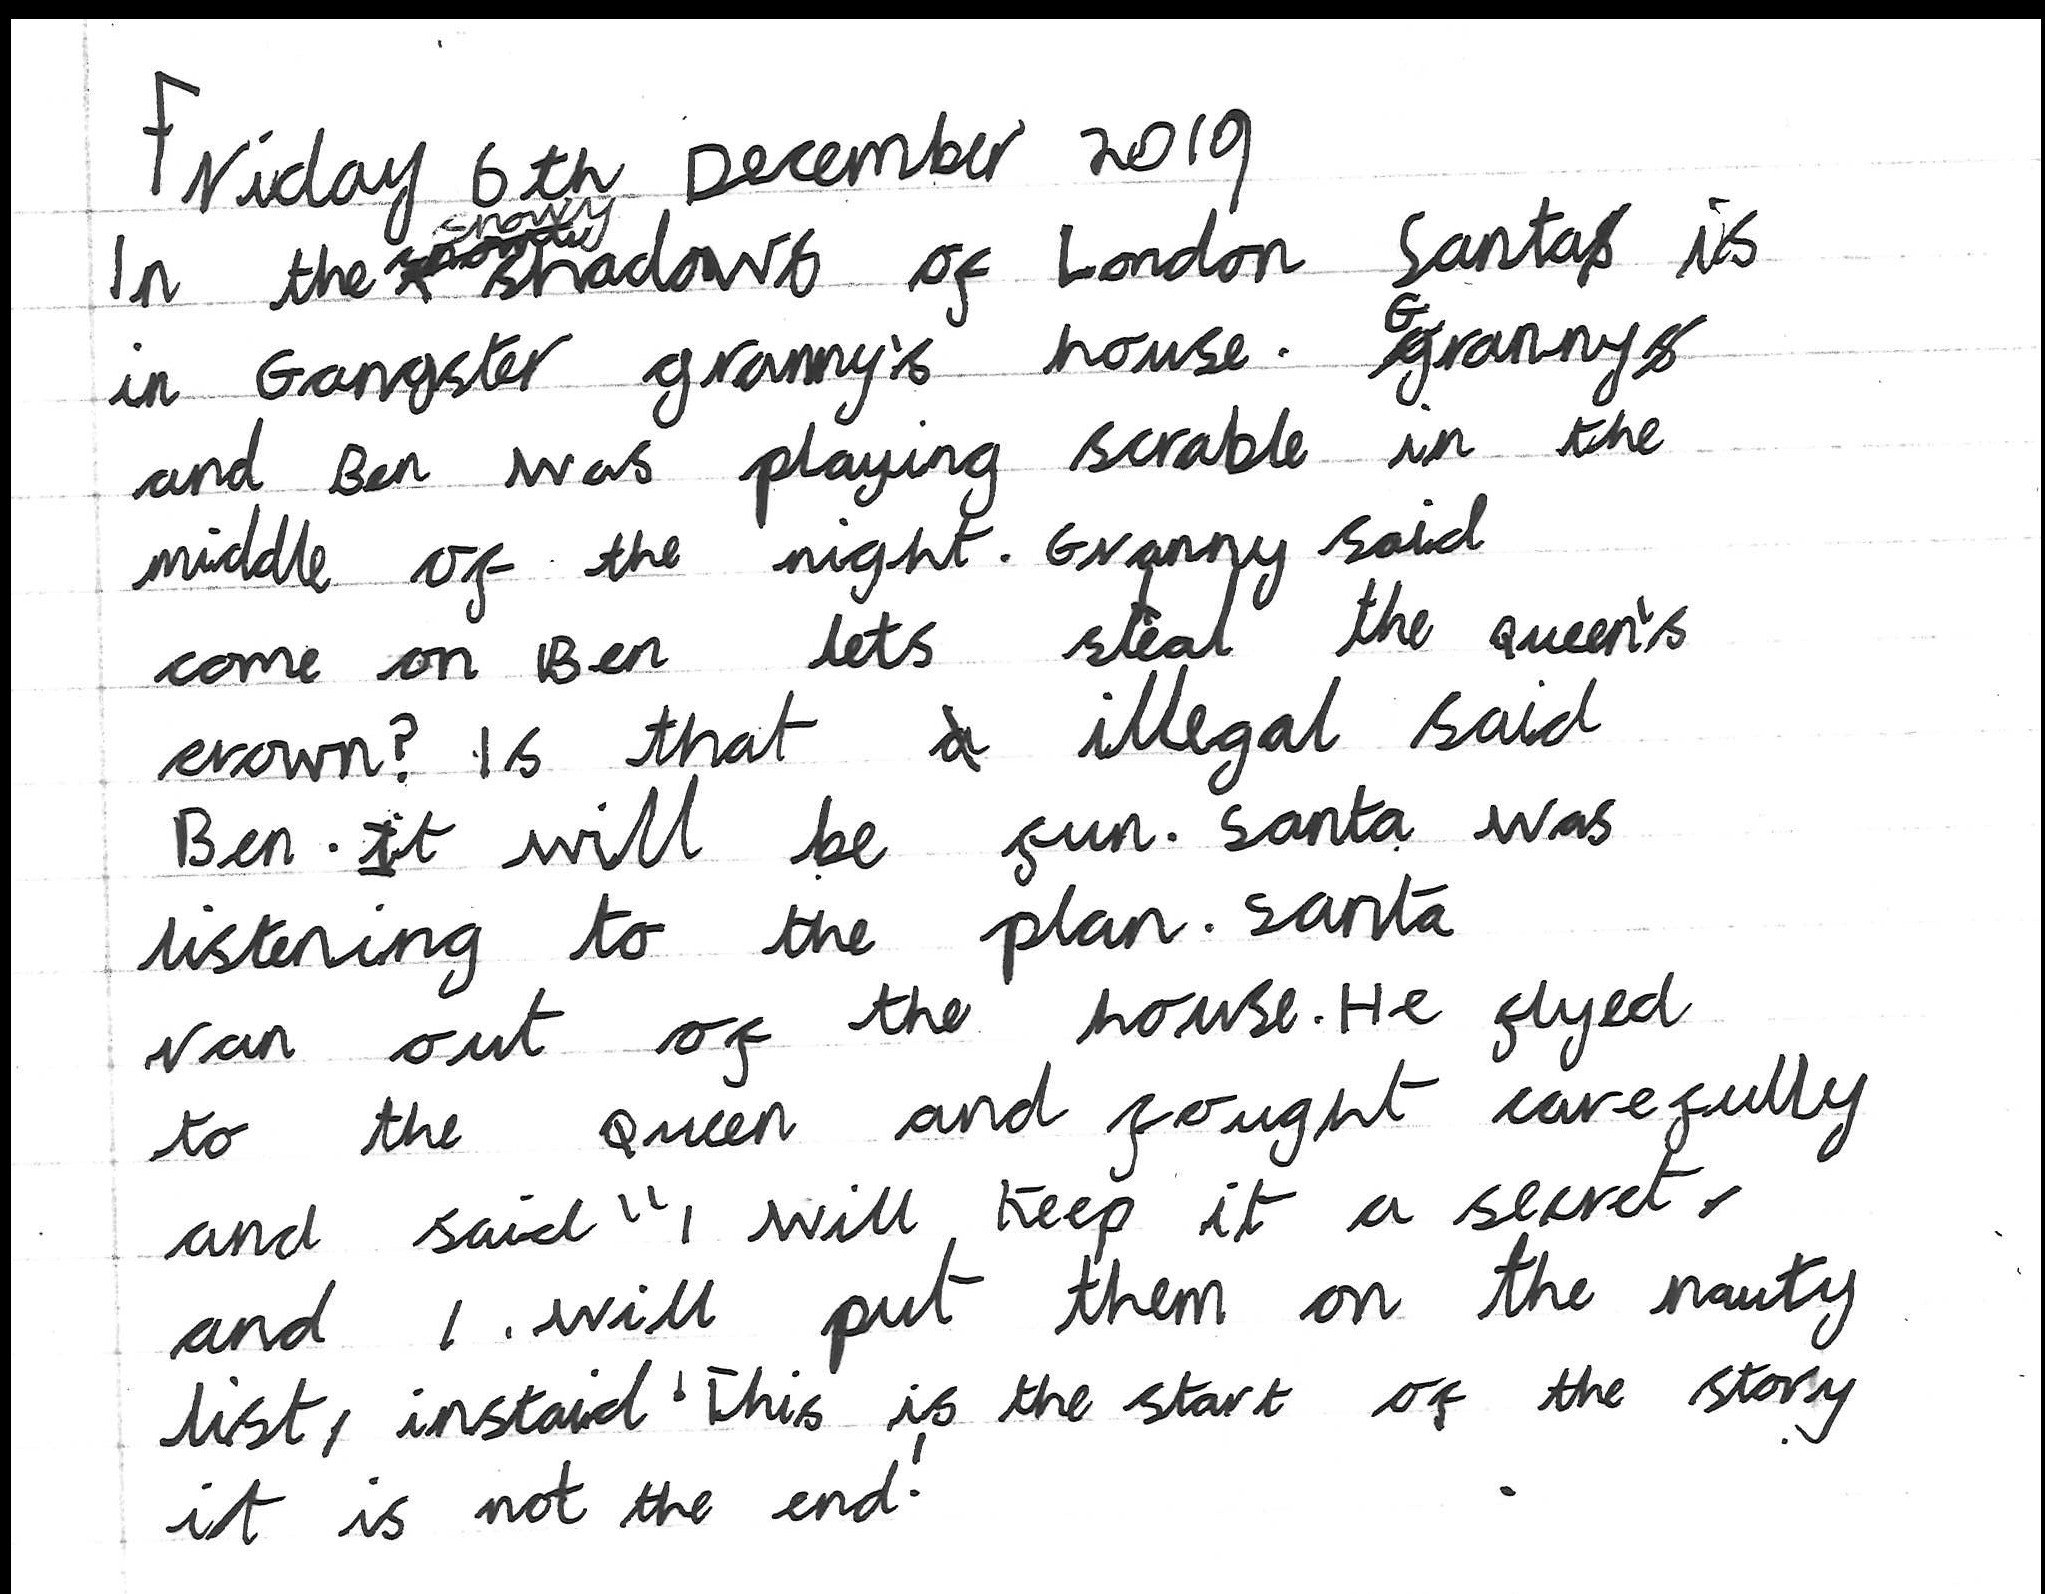 Friday 6th December 2019
In the snowy shadows of London Santa is
in Gangster granny's house. Granny
and Ben was playing scrable in the
middle of the night. Granny said
come on Ben lets steal the Queen's
crown? Is that illegal said
Ben. It will be fun. Santa was
listening to the plan. Santa
ran out of the house. He flyed
to the Queen and fought carefully
and said "I will keep it a secret,
and I will put them on the nauty
list, instaid! This is the start of the story
it is not the end!